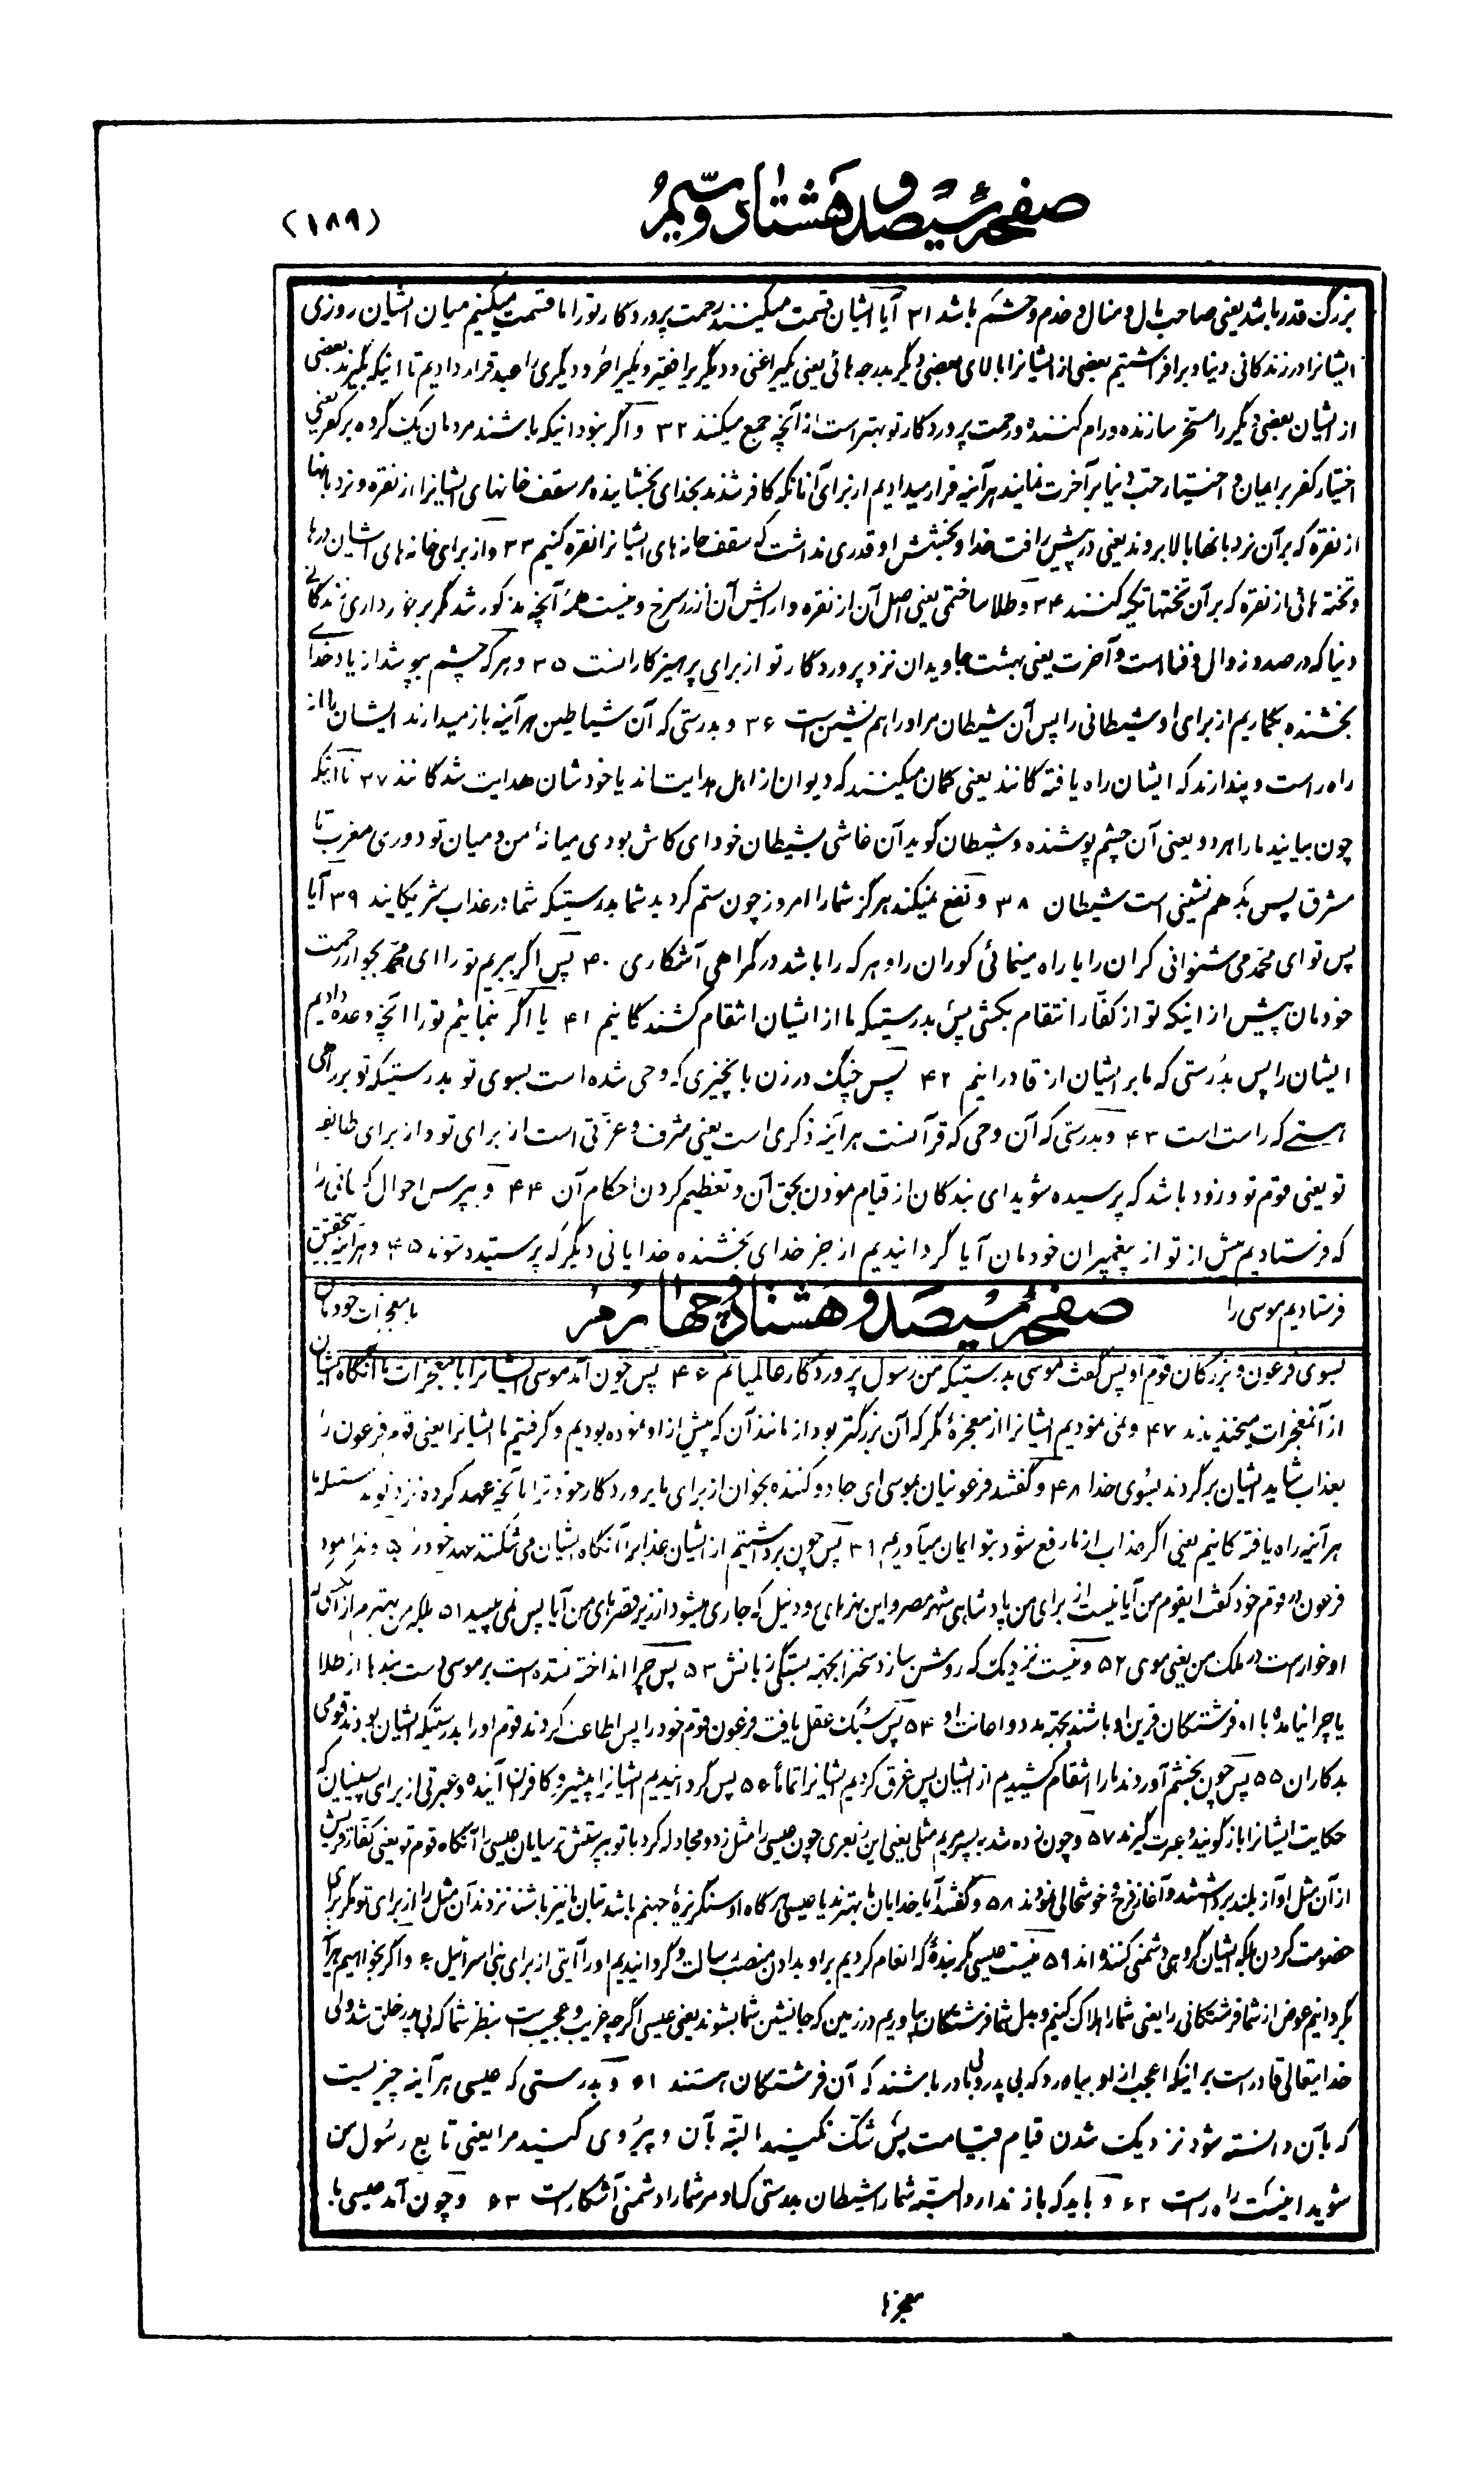 صفحهٔ سیصد و هشتاد و سیم
(۱۸۹)
بزرگ قدر باشد یعنی صاحب مال و منال و خدم و حشم باشد ۳۱ آیا ایشان قسمت میکنند رحمت پروردگار تو را ما قسمت میکنیم میان ایشان روزی
ایشانرا در زندگانی دنیا و برافراشتیم بعضی از ایشانرا بالای بعضی دیگر بدرجه هائی یعنی یکیرا غنی و دیگریرا فقیر و یکیرا حر و دیگری را عبد قرار دادیم تا اینکه بگیرند بعضی
از ایشان بعضی دیگر را مسخر سازنده و رام کننده و رحمت پروردگار تو بهتر است از آنچه جمع میکنند ۳۲ و اگر نبود اینکه باشند مردمان یک گروه بر کفر یعنی
اختیار کفر بر ایمان و اختیار حب دنیا بر آخرت نمایند هرآینه قرار میدادیم از برای آنانکه کافر شدند بخدای بخشاینده مر سقف خانهای ایشانرا از نقره و نردبانها
از نقره که بر آن نردبانها بالا بروند یعنی در پیش رافت خدا و بخشش او قدری نداشت که سقف خانه های ایشانرا نقره کنیم ۳۳ و از برای خانه های ایشان درها
و تخته هائی از نقره که بر آن تختها تکیه کنند ۳۴ و طلا ساختمی یعنی اصل آن از نقره و آرایش آن از زر سرخ و نیست همهٔ آنچه مذکور شد مگر برخورداری زندگانی
دنیا که در صدد زوال و فنا است و آخرت یعنی بهشت جاویدان نزد پروردگار تو از برای پرهیزکارانست ۳۵ و هر که چشم بپوشد از یاد خدای
بخشنده بگماریم از برای او شیطانی را پس آن شیطان مر او را هم نشین است ۳۶ و بدرستی که آن شیاطین هرآینه بازمیدارند ایشان را از
راه راست و پندارند که ایشان راه یافته گانند یعنی گمان میکنند که دیوان از اهل هدایت اند یا خودشان هدایت شدگانند ۳۷ تا اینکه
چون بیایند ما را هر دو یعنی آن چشم پوشنده و شیطان گوید آن عاشی بشیطان خود ای کاش بودی میانهٔ من و میان تو دوری مغرب تا
مشرق پس بد هم نشینی است شیطان ۳۸ و نفع نمیکند هرگز شما را امروز چون ستم کردید شما بدرستیکه شما در عذاب شریکانید ۳۹ آیا
پس تو ای محمد می شنوانی کران را یا راه مینمائی کوران را و هر که را باشد در گمراهی آشکاری ۴۰ پس اگر ببریم تو را ای محمد بجوار رحمت
خودمان پیش از اینکه تو از کفار انتقام بکشی پس بدرستیکه ما از ایشان انتقام کشندگانیم ۴۱ یا اگر بنمائیم تو را آنچه وعده دادیم
ایشان را پس بدرستی که ما بر ایشان از قادرانیم ۴۲ پس چنگ در زن بانچیزی که وحی شده است بسوی تو بدرستیکه تو بر راهی
هستی که راست است ۴۳ و بدرستی که آن وحی که قرآنست هرآینه ذکری است یعنی شرف و عزتی است از برای تو و از برای طایفه
تو یعنی قوم تو و زود باشد که پرسیده شوید ای بندگان از قیام نمودن بحق آن و تعظیم کردن احکام آن ۴۴ و بپرس احوال کسانی را
که فرستادیم پیش از تو از پیغمبران خودمان آیا گردانیدیم از جز خدای بخشنده خدایانی دیگر که پرستیده شوند ۴۵ و هرآینه بتحقیق
فرستادیم موسی را صفحهٔ سیصد و هشتاد و چهارم با معجزات خودمان
بسوی فرعون و بزرگان قوم او پس گفت موسی بدرستیکه من رسول پروردگار عالمیانم ۴۶ پس چون آمد موسی ایشانرا با معجزات ما آنگاه ایشان
از آنمعجزات میخندیدند ۴۷ و نمی نمودیم ایشانرا از معجزهٔ مگر که آن بزرگتر بود از مانند آن که پیش از او نموده بودیم و گرفتیم ما ایشانرا یعنی قوم فرعون را
بعذاب شاید ایشان برگردند بسوی خدا ۴۸ و گفتند فرعونیان بموسی ای جادو کننده بخوان از برای ما پروردگار خود را بآنچه عهد کرده نزد تو بدرستیکه ما
هرآینه راه یافته گانیم یعنی اگر عذاب از ما رفع شود بتو ایمان میآوریم ۴۹ پس چون برداشتیم از ایشان عذابرا آنگاه ایشان می شکنند عهد خود را ۵۰ و ندا نمود
فرعون در قوم خود گفت ایقوم من آیا نیست از برای من پادشاهی شهر مصر و این نهرهای رود نیل که جاری میشود از زیر قصرهای من آیا پس نمی بینید ۵۱ بلکه من بهترم از آنکسی که
او خوار است در ملک من یعنی موسی ۵۲ و نیست نزدیک که روشن سازد سخنرا بجهة بستگی زبانش ۵۳ پس چرا انداخته نشده است بر موسی دست بندها از طلا
یا چرا نیامده با او فرشتگان قرین او باشند بجهة مدد و اعانت او ۵۴ پس سبک عقل یافت فرعون قوم خود را پس اطاعت کردند قوم او را بدرستیکه ایشان بودند قومی
بدکاران ۵۵ پس چون بخشم آوردند ما را انتقام کشیدیم از ایشان پس غرق کردیم ایشانرا تماماً ۵۶ پس گردانیدیم ایشانرا پیشرو کافران آینده و عبرتی از برای پسینیان که
حکایت ایشانرا باز گویند و عبرت گیرند ۵۷ و چون زده شد به پسر مریم مثلی یعنی ابن زبعری چون عیسی را مثل زد و مجادله کرد با تو بپرستش ترسایان عیسی را آنگاه قوم تو یعنی کفار قریش
از آن مثل آواز بلند برداشتند و آغاز فرح و خوشحالی نمودند ۵۸ و گفتند آیا خدایان ما بهترند یا عیسی هرگاه او سنگریزهٔ جهنم باشد بتان ما نیز باشند نزدند آن مثل را از برای تو مگر برای
خصومت کردن بلکه ایشان گروهی دشمنی کننده اند ۵۹ نیست عیسی مگر بندهٔ که انعام کردیم بر او بدادن منصب رسالت و گردانیدیم او را آیتی از برای بنی اسرائیل ۶۰ و اگر بخواهیم هرآینه
بگردانیم عوض از شما فرشتگانی را یعنی شما را هلاک کنیم و بدل شما فرشتگان بیاوریم در زمین که جانشین شما بشوند یعنی عیسی اگر چه غریب و عجیب است بنظر شما که بی پدر خلق شد ولی
خدایتعالی قادر است بر اینکه اعجب از او بیاورد که بی پدر و بی مادر باشند که آن فرشتگان هستند ۶۱ و بدرستی که عیسی هرآینه چیزیست
که بآن دانسته شود نزدیک شدن قیام قیامت پس شک نکنید البته بآن و پیروی کنید مرا یعنی تابع رسول من
شوید اینست راه راست ۶۲ و باید که باز ندارد البته شما را شیطان بدرستی که او مر شما را دشمنی آشکار است ۶۳ و چون آمد عیسی با
معجزها